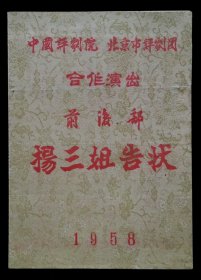 中國評劇院 北京市評劇团
合作演出
前後部
楊三姐告状
1958